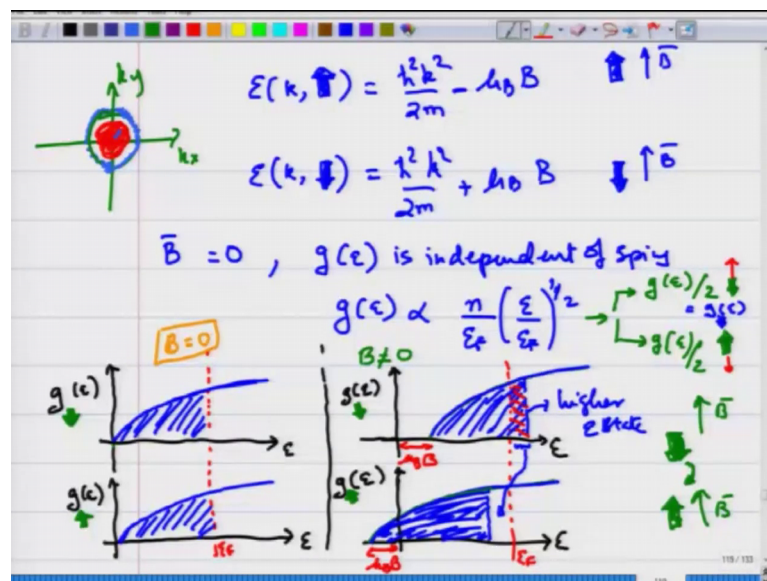 ky
kx
ε(k, ⬆) = ħ²k²/2m - μ_B B ⬆ ↑B̄
ε(k, ⬇) = ħ²k²/2m + μ_B B ⬇ ↑B̄
B̄ = 0 , g(ε) is independent of spin
g(ε) ∝ n/ε_F (ε/ε_F)^1/2 → g(ε)/2 ⬇
= g(ε)
→ g(ε)/2 ⬆
B = 0
B ≠ 0
g(ε) ⬇
ε
g(ε) ⬇
μ_B B
ε
higher
ε state
↑B̄
⬇
2
g(ε) ⬆
ε_F
ε
g(ε) ⬆
μ_B B
ε_F
ε
⬆ ↑B̄
115 / 133